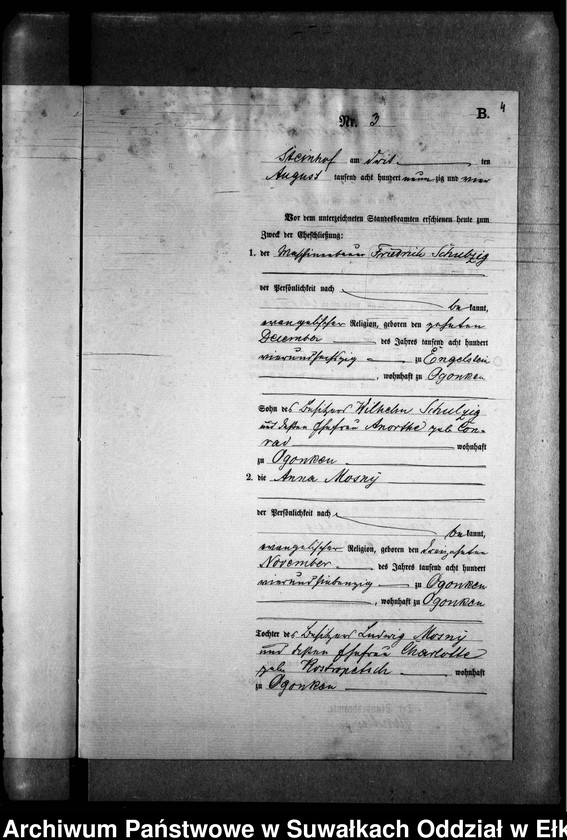 4
B.
Nr. 3
Steinhof am drit ten
August tausend acht hundert neun zig und vier
Vor dem unterzeichneten Standesbeamten erschienen heute zum
Zweck der Eheschließung:
1. der Friedrich Schulzig
der Persönlichkeit nach
be kannt,
evangelischer Religion, geboren den zehnten
Dezember des Jahres tausend acht hundert
vierundsechszig zu Engelstein
, wohnhaft zu Ogonken
Sohn des Besitzers Wilhelm Schulzig
und dessen Ehefrau Anorthe geb. Con-
rad wohnhaft
zu Ogonken
2. die Anna Mosny
der Persönlichkeit nach
be kannt,
evangelischer Religion, geboren den dreizehnten
November des Jahres tausend acht hundert
vierundsiebenzig zu Ogonken
, wohnhaft zu Ogonken
Tochter des Besitzers Ludwig Mosny
und dessen Ehefrau Charlotte
geb. wohnhaft
zu Ogonken
Archiwum Państwowe w Suwałkach Oddział w Ełk